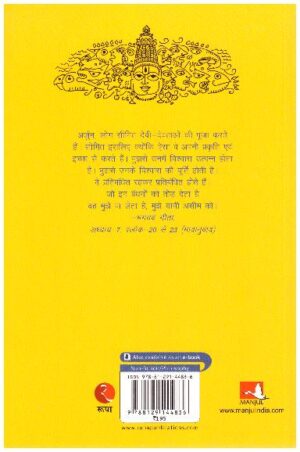 अर्जुन, लोग सीमित देवी-देवताओं की पूजा करते
हैं सीमित इसलिए क्योंकि ऐसा वे अपनी प्रकृति एवं
इच्छा से करते हैं। मुझसे उनमें विश्वास उत्पन्न होता
है। मुझसे उनके विश्वास की पूर्ति होती है।
वे प्रतिबंधित रहकर प्रतिबंधित होते हैं
जो इन बंधनों को तोड़ देता है
वह मुझे पा लेता है, मुझे यानी असीम को।
-भगवद् गीता,
अध्याय 7, श्लोक-20 से 23 (भावानुवाद)
Also available as an e-book
9 788129 144836
₹195
रूपा
MANJUL
www.manjulindia.com